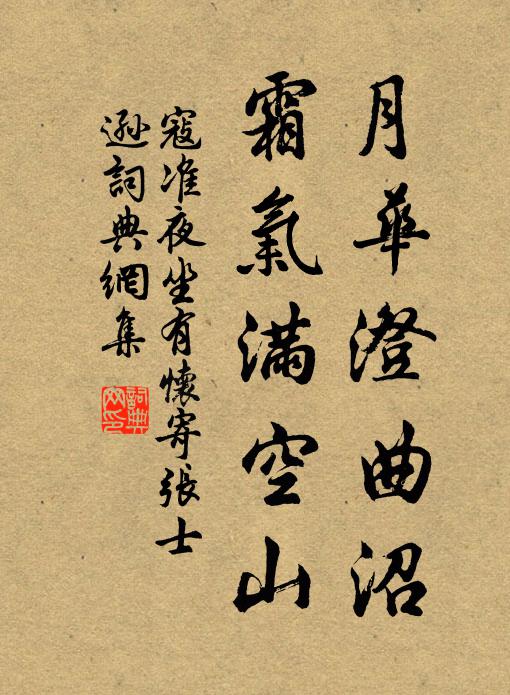 月華澄曲沼
霜氣滿空山
寇准夜坐有懷寄張士
遜詞典網集
詞典
网印